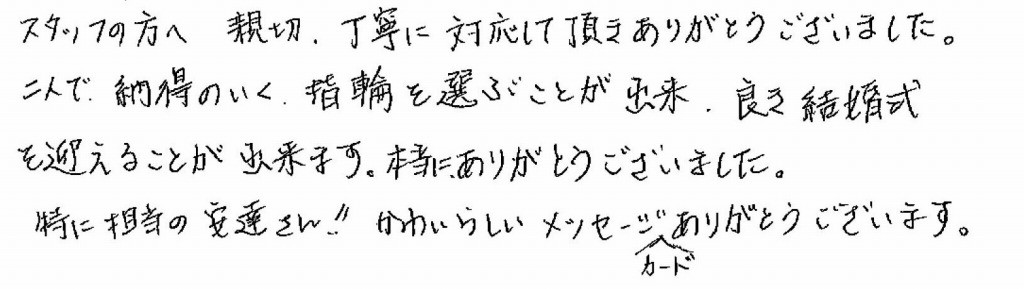 スタッフの方へ 親切、丁寧に対応して頂きありがとうございました。
二人で、納得のいく、指輪を選ぶことが出来、良き結婚式
を迎えることが出来ます。本当にありがとうございました。
特に担当の安達さん!! かわいらしいメッセージカードありがとうございます。